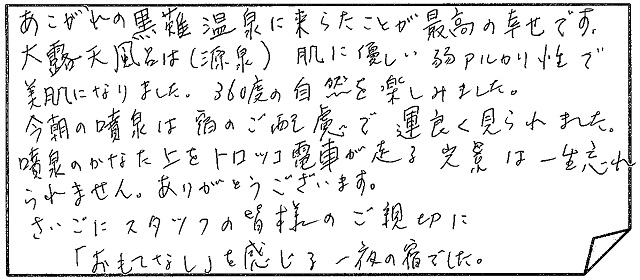 あこがれの黒薙温泉に来られたことが最高の幸せです。
大露天風呂は(源泉) 肌に優しい弱アルカリ性で
美肌になりました。360度の自然を楽しみました。
今朝の噴泉は宿のご配慮で運良く見られました。
噴泉のかなた上をトロッコ電車が走る光景は一生忘れ
られません。ありがとうございます。
さいごにスタッフの皆様のご親切に
「おもてなし」を感じる一夜の宿でした。